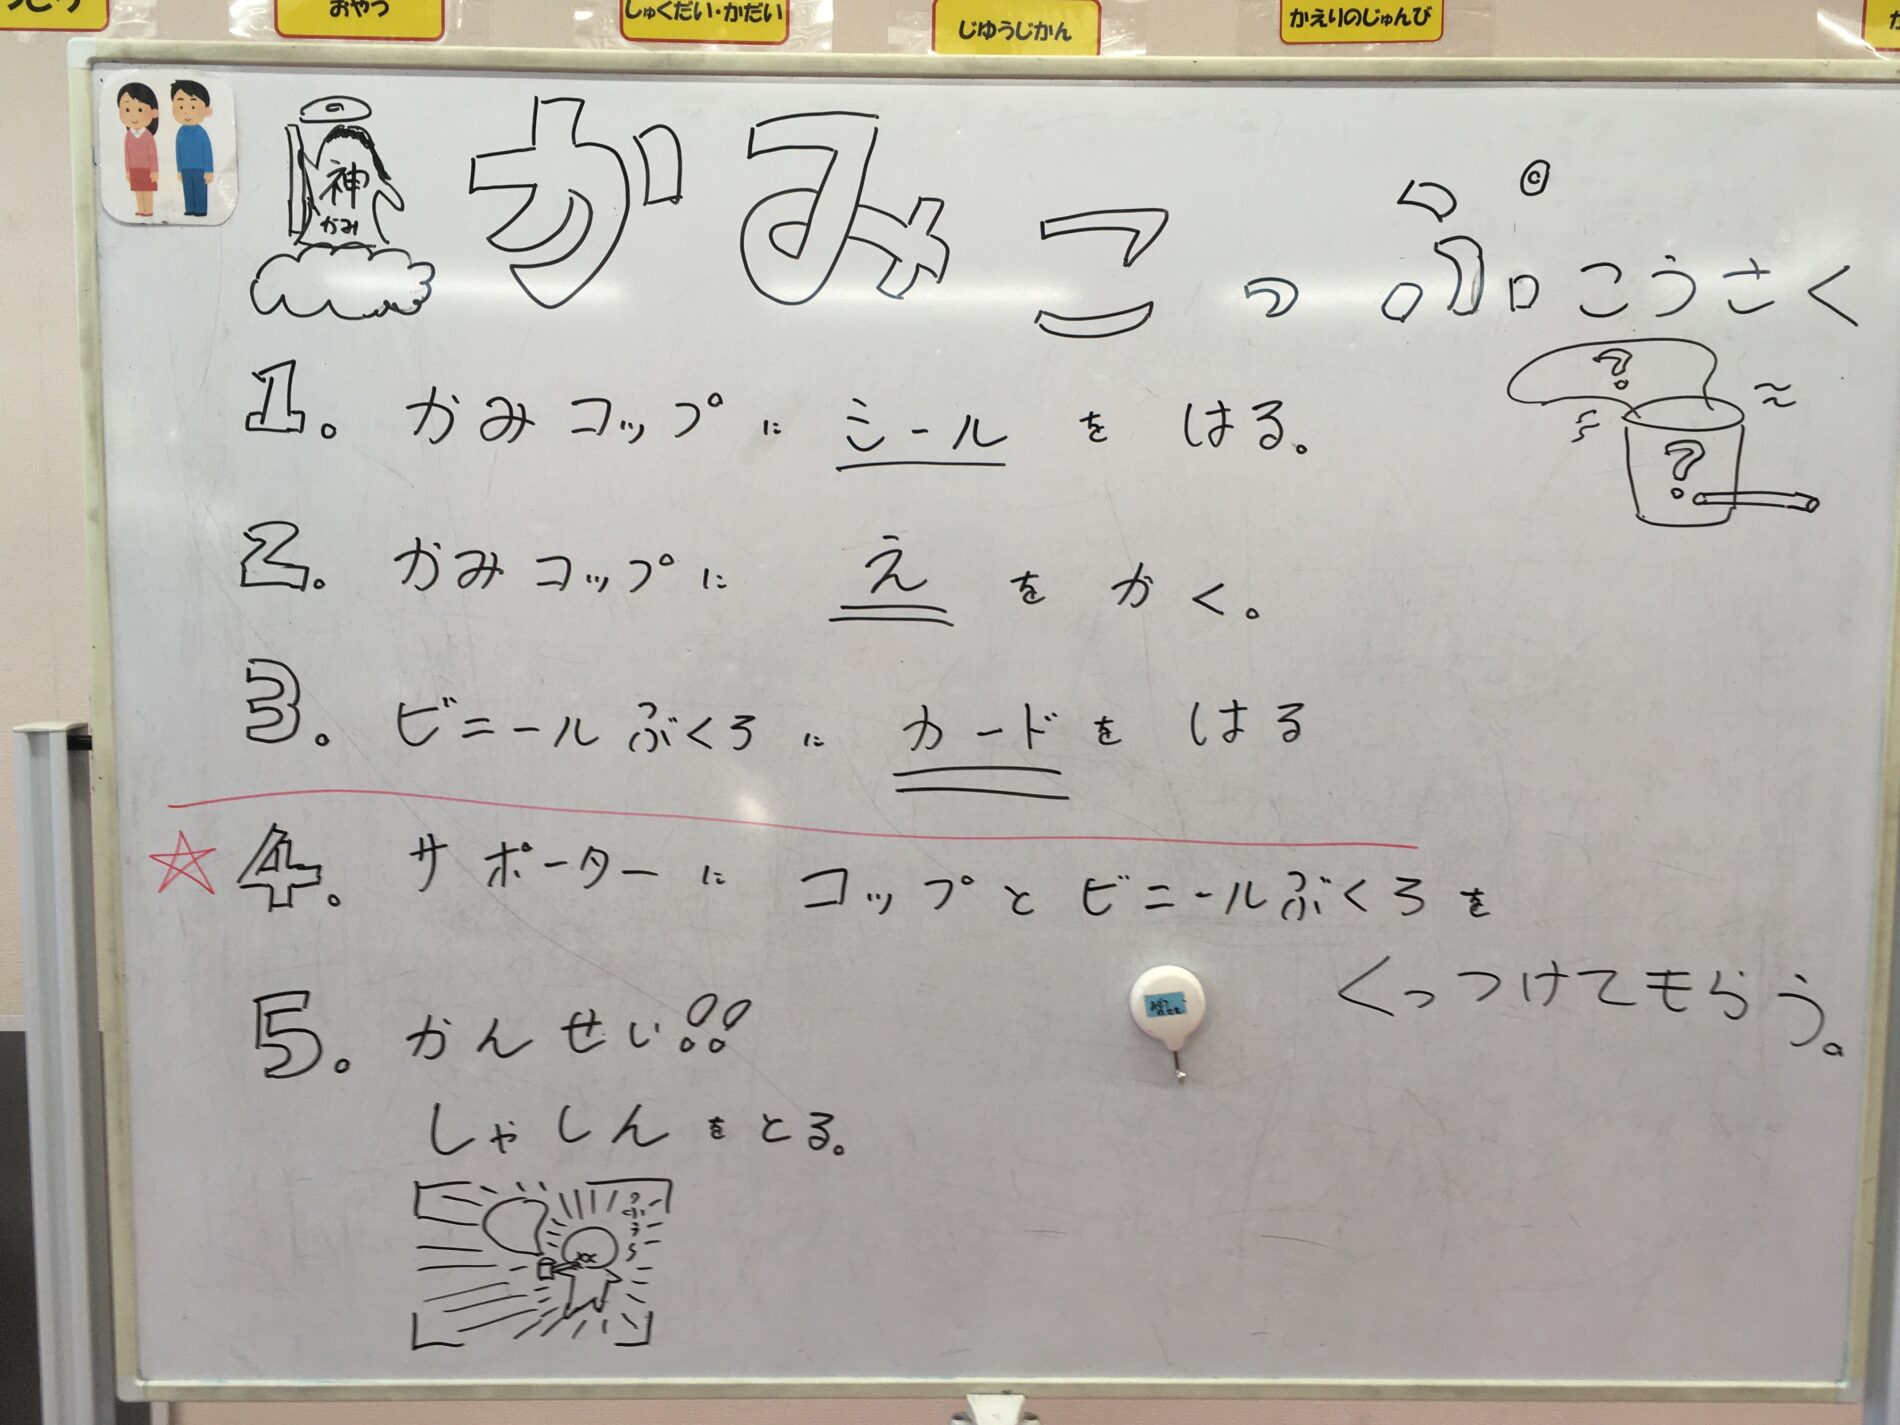 おやつ
しゅくだい・かだい
じゆうじかん
かえりのじゅんび
神
かみ
かみこっぷ こうさく
?
?
1. かみコップに シール を はる。
2. かみコップに え を かく。
3. ビニールぶくろに カードを はる
☆4. サポーターに コップとビニールぶくろを
くっつけてもらう。
5. かんせい!!
しゃしんをとる。